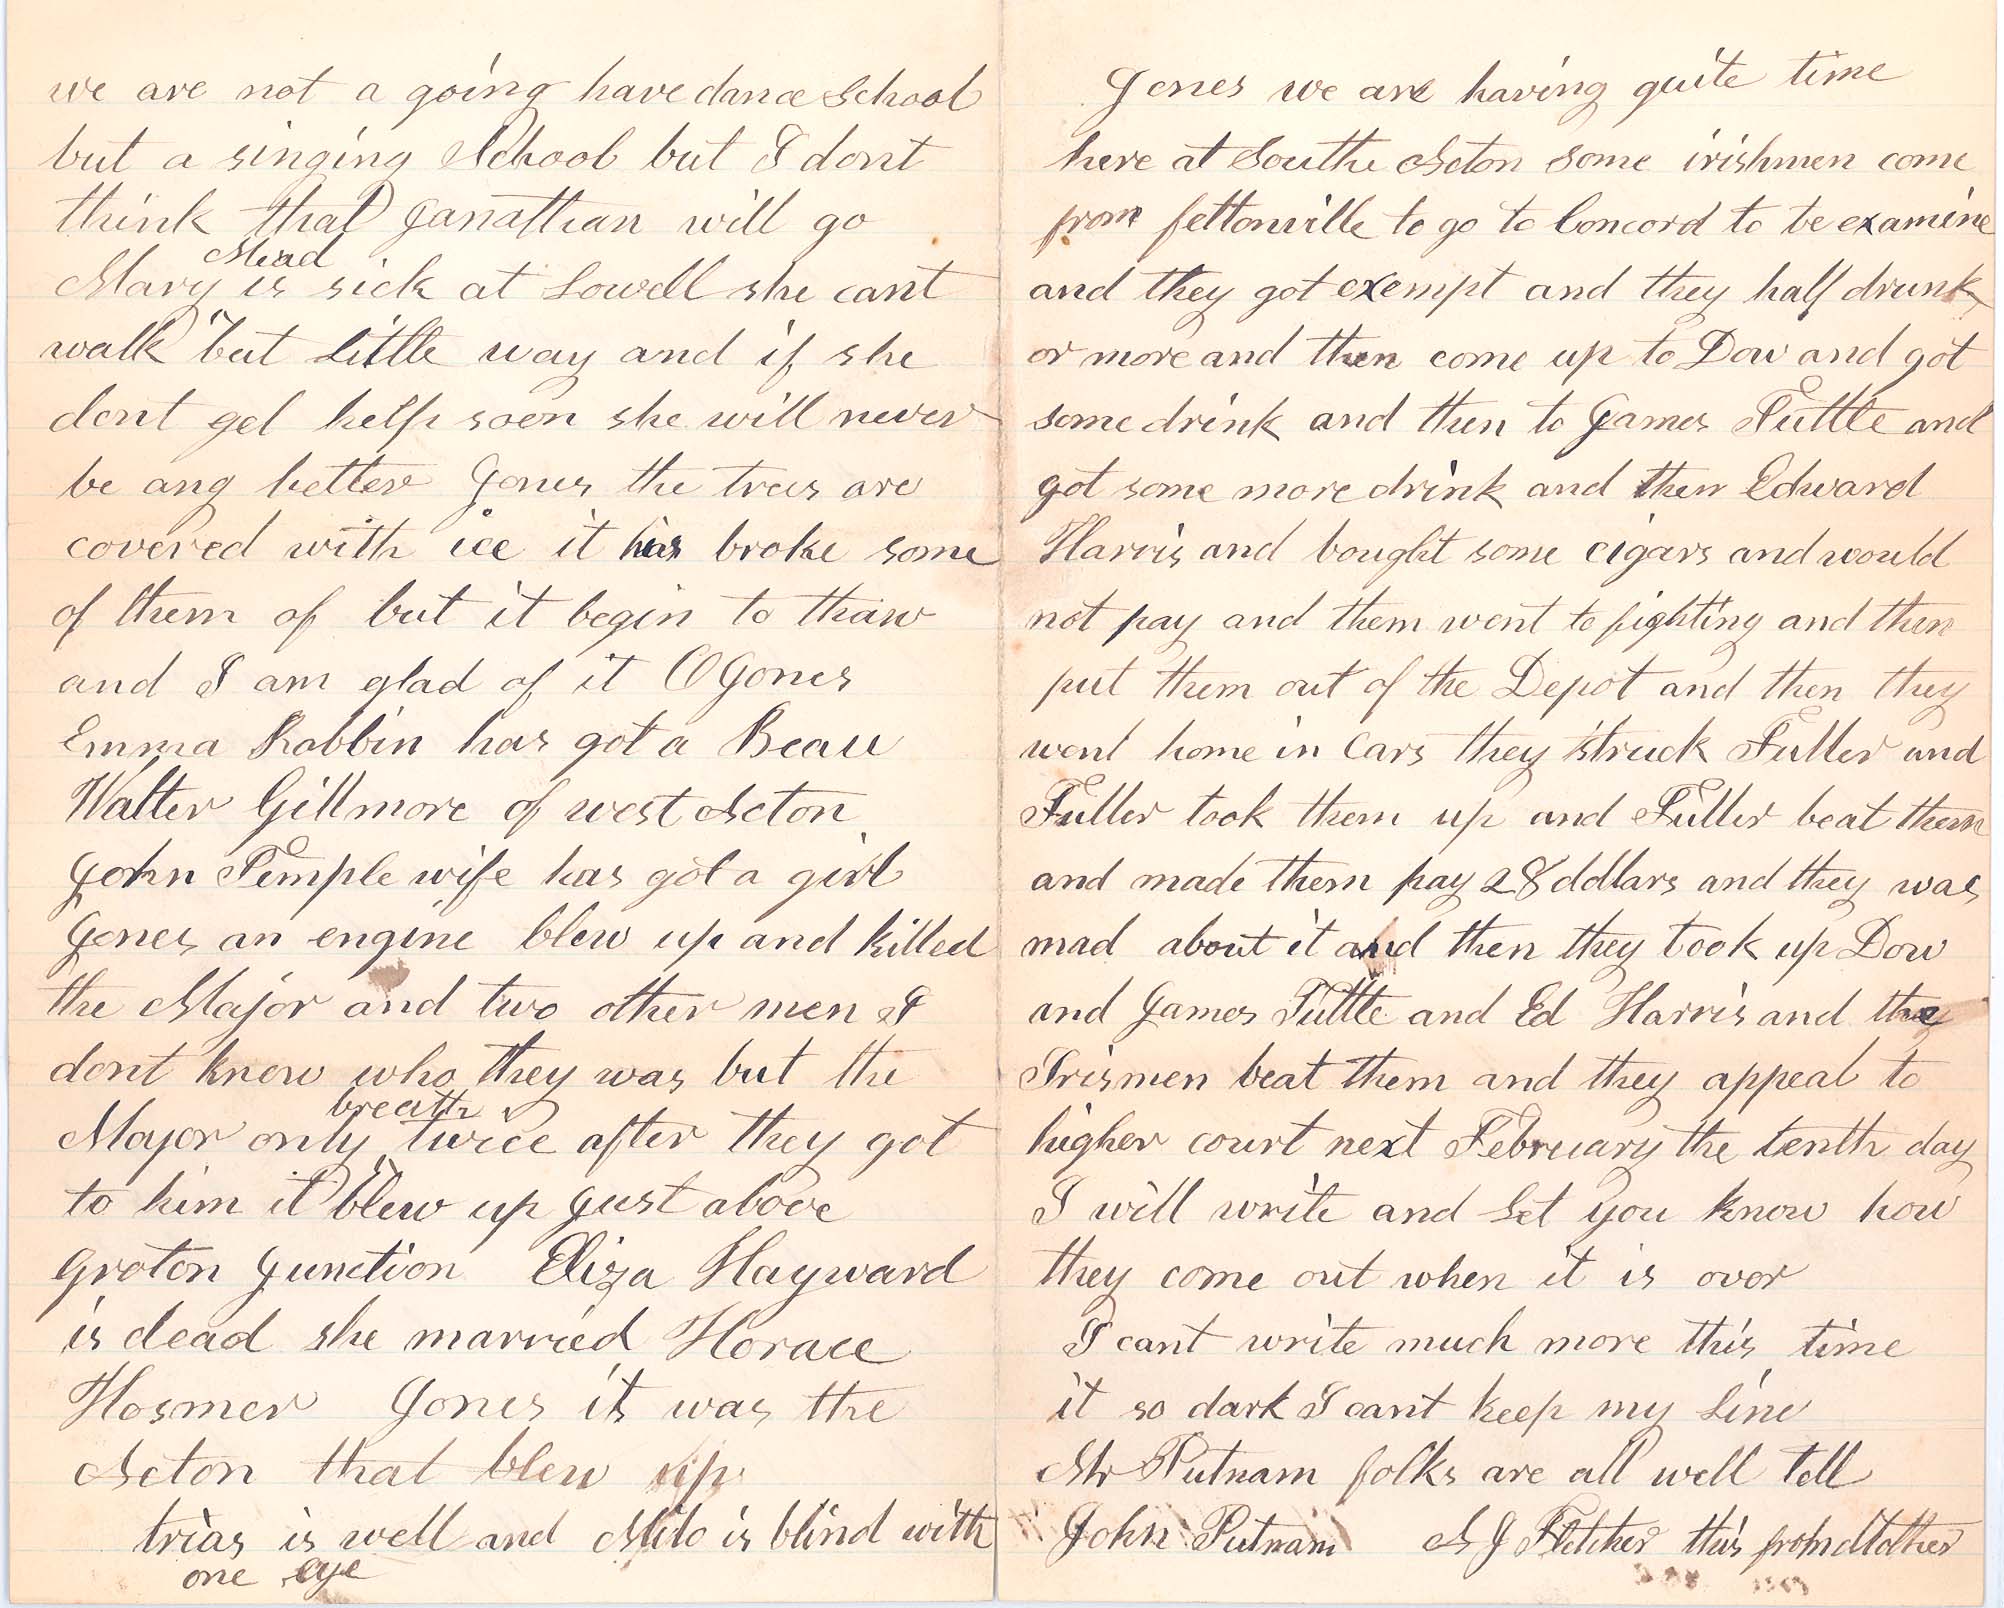 we are not a going have dance School
but a singing School but I dont
think that Janathan will go
Mead
Mary is sick at Lowell she cant
walk but little way and if she
dont get help soon she will never
be ang better Jones the trees are
covered with ice it has broke some
of them of but it begin to thaw
and I am glad of it O Jones
Emma Robbin has got a Beau
Walter Gillmore of west Acton
John Temple wife has got a girl
Jones an engine blew up and killed
the Major and two other men I
dont know who they was but the
breath
Major only twice after they got
to him it blew up just above
Groton Junction Eliza Hayward
is dead she married Horace
Hosmer Jones it was the
Acton that blew up
trias is well and Milo is blind with
one eye
Jones we are having quite time
here at Southe Acton some irishmen come
from feltonville to go to Concord to be examine
and they got exempt and they half drunk
or more and then come up to Dow and got
some drink and then to James Tuttle and
got some more drink and then Edward
Harris and bought some cigars and would
not pay and them went to fighting and then
put them out of the Depot and then they
went home in Cars they struck Fuller and
Fuller took them up and Fuller beat them
and made them pay 28 dollars and they was
mad about it and then they took up Dow
and James Tuttle and Ed Harris and the
Irismen beat them and they appeal to
higher court next February the tenth day
I will write and Let you know how
they come out when it is over
I cant write much more this time
it so dark I cant keep my Line
Mr Putnam folks are all well tell
John Putnam A J Fletcher this from